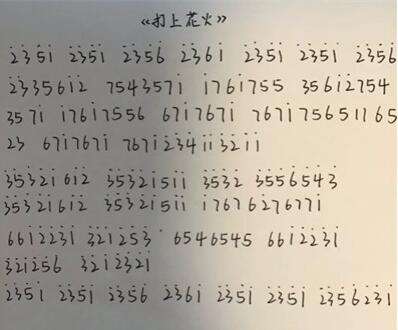 《打上花火》
2̇3̇5̇1̇ 2̇3̇5̇1̇ 2̇3̇5̇6̇ 2̇3̇6̇1̇ 2̇3̇5̇1̇ 2̇3̇5̇1̇ 2̇3̇5̇6̇
2̇3̇3̇5̇6̇1̇2̇ 7543571̇ 1̇761̇755 3561̇2754
3571̇ 1̇761̇7556 671̇7671̇ 7671̇75651̇1̇65
23 671̇7671̇ 7671̇2̇3̇4̇1̇1̇3̇2̇1̇1̇
3̇5̇3̇2̇1̇61̇2̇ 3̇5̇3̇2̇1̇51̇1̇ 3̇5̇3̇2̇ 3̇5̇5̇6̇5̇4̇3̇
3̇5̇3̇2̇1̇61̇2̇ 3̇5̇3̇2̇1̇51̇1̇ 1̇7676276771̇
661̇2̇2̇3̇1̇ 3̇2̇1̇2̇53̇ 6546545 661̇2̇2̇3̇1̇
3̇2̇1̇2̇56 3̇2̇1̇2̇3̇2̇1̇
2̇3̇5̇1̇ 2̇3̇5̇1̇ 2̇3̇5̇6̇ 2̇3̇6̇1̇ 2̇3̇5̇1̇ 2̇3̇5̇1̇ 2̇3̇5̇6̇2̇3̇1̇